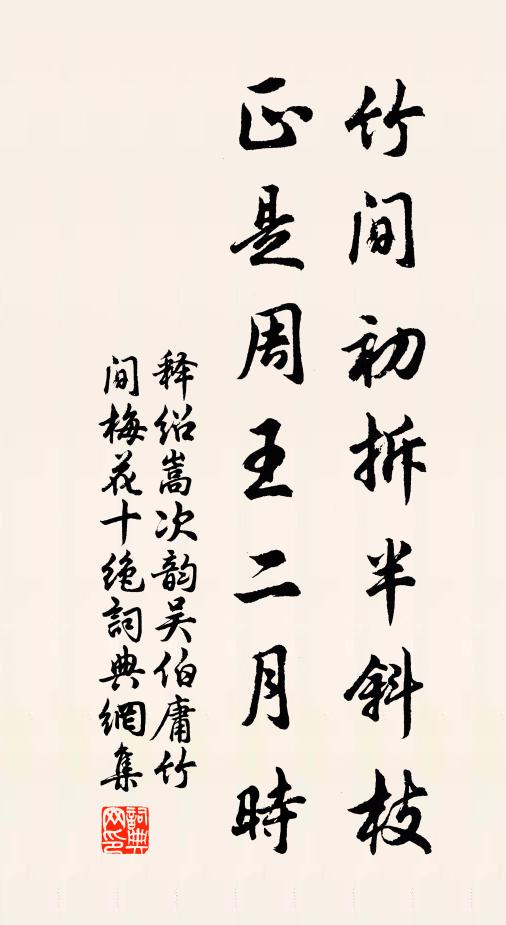 竹间初拆半斜枝
正是周王二月時
释绍嵩次韵吴伯庸竹
间梅花十绝詞典網集
詞典網印